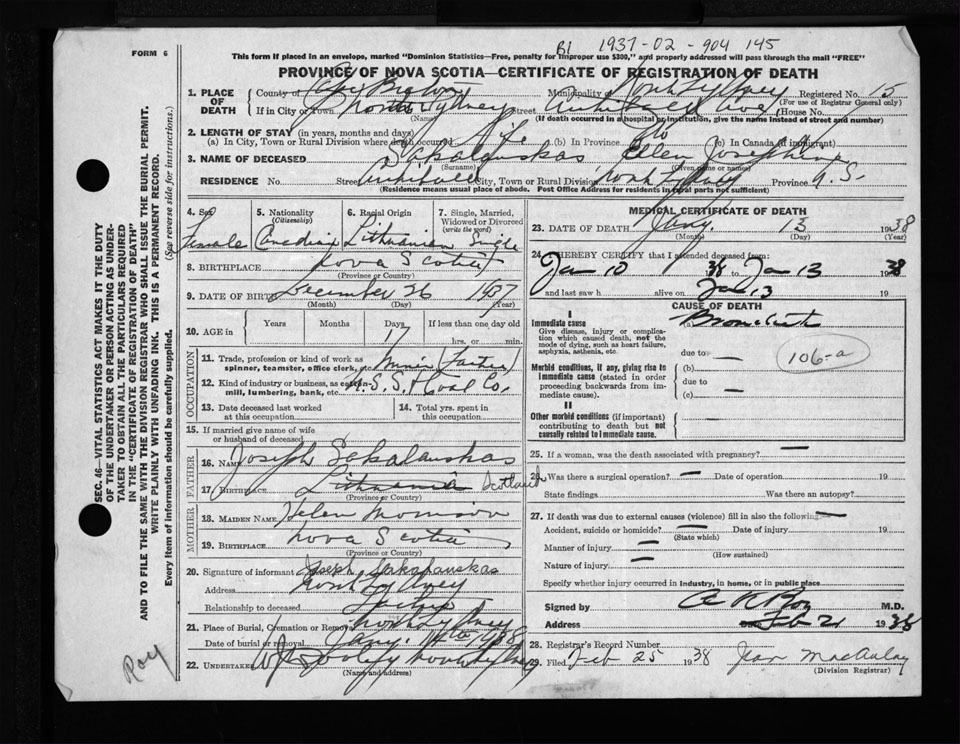 B1 1937-02-904 145
FORM 6
This form if placed in an envelope, marked "Dominion Statistics—Free, penalty for improper use $300," and properly addressed will pass through the mail "FREE"
PROVINCE OF NOVA SCOTIA—CERTIFICATE OF REGISTRATION OF DEATH
1. PLACE OF DEATH County of Cape Breton Municipality of North Sydney Registered No. 15
(For use of Registrar General only)
If in City or Town North Sydney Street Archibald Ave House No.
(Name) (If death occurred in a hospital or institution, give the name instead of street and number)
2. LENGTH OF STAY (in years, months and days)
(a) In City, Town or Rural Division where death occurred Life (b) In Province (c) In Canada (if immigrant)
3. NAME OF DECEASED Sakalauskas Ellen Josephine
(Surname) (Given name or names)
RESIDENCE No. Street Archibald City, Town or Rural Division North Sydney Province N.S.
(Residence means usual place of abode. Post Office Address for residents in rural parts not sufficient)
4. Sex Female
5. Nationality (Citizenship) Canadian
6. Racial Origin Lithuanian
7. Single, Married, Widowed or Divorced (write the word) Single
8. BIRTHPLACE Nova Scotia
(Province or Country)
9. DATE OF BIRTH December 26 1937
(Month) (Day) (Year)
10. AGE in Years Months Days 17 If less than one day old
hrs. or min.
OCCUPATION
11. Trade, profession or kind of work as spinner, teamster, office clerk, etc. Miner (Father)
12. Kind of industry or business, as cotton mill, lumbering, bank, etc. N.S.S. & Coal Co.
13. Date deceased last worked at this occupation
14. Total yrs. spent in this occupation
15. If married give name of wife or husband of deceased
FATHER
16. NAME Joseph Sakalauskas
17. BIRTHPLACE Lithuania Scotland
(Province or Country)
MOTHER
18. MAIDEN NAME Helen Morrison
19. BIRTHPLACE Nova Scotia
(Province or Country)
20. Signature of informant Joseph Sakalauskas
Address North Sydney
Relationship to deceased Father
21. Place of Burial, Cremation or Removal North Sydney
Date of burial or removal Jany. 1938
22. UNDERTAKER Dooley North Sydney
(Name and address)
MEDICAL CERTIFICATE OF DEATH
23. DATE OF DEATH Jany. 13 1938
(Month) (Day) (Year)
24. I HEREBY CERTIFY that I attended deceased from:
Jan 10 38 to Jan 13 1938
and last saw h alive on Jan 13 19
CAUSE OF DEATH
I
Immediate cause (a) Bronchitis
Give disease, injury or complication which caused death, not the mode of dying, such as heart failure, asphyxia, asthenia, etc.
due to —
106-a
Morbid conditions, if any, giving rise to immediate cause (stated in order proceeding backwards from immediate cause).
(b)
due to —
(c)
II
Other morbid conditions (if important) contributing to death but not causally related to immediate cause.
25. If a woman, was the death associated with pregnancy? —
26. Was there a surgical operation? — Date of operation 19
State findings Was there an autopsy?
27. If death was due to external causes (violence) fill in also the following: —
Accident, suicide or homicide? — Date of injury 19
(State which)
Manner of injury —
(How sustained)
Nature of injury —
Specify whether injury occurred in industry, in home, or in public place
Signed by A K Roy M.D.
Address Feb 21 1938
28. Registrar's Record Number
29. Filed Feb 25 1938 Jean MacAulay
(Division Registrar)
SEC. 46—VITAL STATISTICS ACT MAKES IT THE DUTY
OF THE UNDERTAKER OR PERSON ACTING AS UNDERTAKER
TO OBTAIN ALL THE PARTICULARS REQUIRED
IN THE "CERTIFICATE OF REGISTRATION OF DEATH"
AND TO FILE THE SAME WITH THE DIVISION REGISTRAR WHO SHALL ISSUE THE BURIAL PERMIT.
WRITE PLAINLY WITH UNFADING INK. THIS IS A PERMANENT RECORD.
Every item of information should be carefully supplied. (See reverse side for instructions.)
Roy